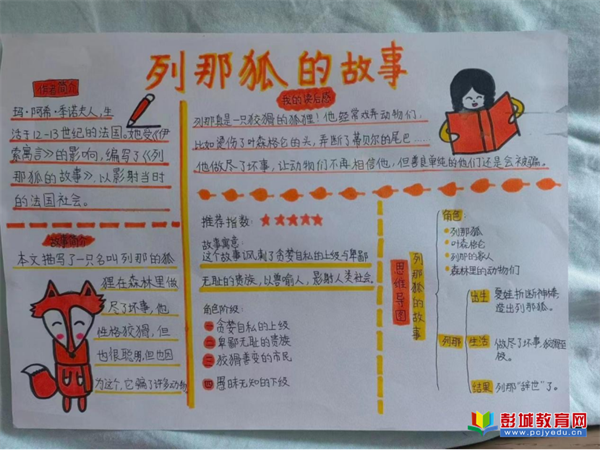 列那狐的故事
作者简介
玛·阿希·季诺夫人,生
活于12-13世纪的法国。她受《伊
索寓言》的影响,编写了《列
那狐的故事》,以影射当时
的法国社会。
我的读后感
列那真是一只狡猾的狐狸!他经常戏弄动物们.
比如烫伤了叶森格仑的头,弄断了蒂贝尔的尾巴……
他做尽了坏事,让动物们不再相信他,但善良单纯的他们还是会被骗。
故事简介
本文描写了一只名叫列那的狐
狸在森林里做
尽了坏事,他
性格狡猾,但
也很聪明,但也因
为这个,它骗了许多动物
推荐指数:★★★★★
故事寓意:
这个故事讽刺了贪婪自私的上级与卑鄙
无耻的贵族,以兽喻人,影射人类社会.
角色阶级:
一 贪婪自私的上级
二 卑鄙无耻的贵族
三 狡猾善变的市民
四 愚昧无知的下级
列那狐的故事
思维导图
角色:
列那狐
叶森格仑
列那的家人
森林里的动物们
出生
夏娃折断神棒,
造出列那狐。
列那
生活
做尽了坏事,狡猾至
极。
结果
列那“辞世”了。
彭城教育网
www.pcjyedu.cn